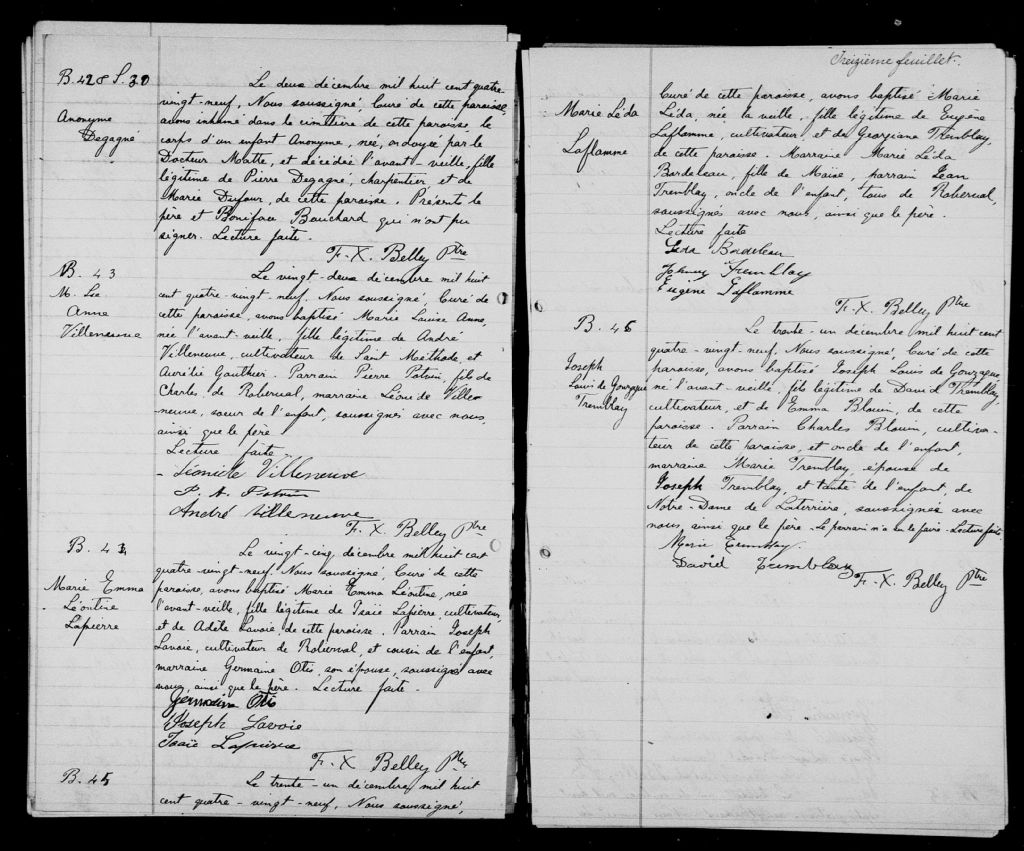 B. 42 & S. 30
Anonyme
Degagné
Le deux décembre mil huit cent quatre
vingt-neuf, Nous soussigné, Curé de cette paroisse,
avons inhumé dans le cimetière de cette paroisse, le
corps d'un enfant Anonyme, née, ondoyée par le
Docteur Matte, et décédée l'avant-veille, fille
légitime de Pierre Degagné, charpentier et de
Marie Dufour, de cette paroisse. Présents le
père et Boniface Bouchard qui n'ont pu
signer. Lecture faite.
F.-X. Belley Ptre
B. 43
M. Lse
Anne
Villeneuve
Le vingt-deux décembre mil huit
cent quatre-vingt-neuf, Nous soussigné, Curé de
cette paroisse, avons baptisé Marie Louise Anne,
née l'avant-veille, fille légitime de André
Villeneuve, cultivateur de Saint Méthode, et
Aurélie Gauthier. Parrain Pierre Potvin, fils de
Charles, de Roberval, marraine Léonide Ville-
neuve, soeur de l'enfant, soussignés avec nous,
ainsi que le père.
Lecture faite
- Léonide Villeneuve
P. A. Potvin
André Villeneuve
F. X. Belley Ptre
B. 44
Marie Emma
- Léontine
Lapierre
Le vingt-cinq décembre mil huit cent
quatre-vingt-neuf, Nous soussigné, Curé de cette
paroisse, avons baptisé Marie Emma Léontine, née
l'avant-veille, fille légitime de Isaïe Lapierre, cultivateur,
et de Adèle Lavoie, de cette paroisse. Parrain Joseph
Lavoie, cultivateur de Roberval, et cousin de l'enfant,
marraine Germaine Otis, son épouse, soussignés avec
nous, ainsi que le père. Lecture faite.
Germaine Otis
Joseph Lavoie
Isaïe Lapierre
F. X. Belley Ptre
B. 45
Le trente-un décembre mil huit
cent quatre-vingt-neuf, Nous soussigné,
Treizième feuillet.
Marie Léda
Laflamme
Curé de cette paroisse, avons baptisé Marie
Léda, née la veille, fille légitime de Eugène
Laflamme, cultivateur, et de Georgiana Tremblay,
de cette paroisse. Marraine Marie Léda
Bordeleau, fille de Moïse, parrain Jean
Tremblay, oncle de l'enfant, tous de Roberval,
soussignés avec nous, ainsi que le père.
Lecture faite
Léda Bordeleau
Johnny Tremblay
Eugène Laflamme
F. X. Belley Ptre
B. 46
Joseph
Louis de Gonzague
Tremblay
Le trente-un décembre mil huit cent
quatre-vingt-neuf, Nous soussigné, Curé de cette
paroisse, avons baptisé Joseph Louis de Gonzague
né l'avant-veille, fils légitime de David Tremblay,
cultivateur, et de Emma Blouin, de cette
paroisse. Parrain Charles Blouin, cultiva-
teur de cette paroisse, et oncle de l'enfant,
marraine Marie Tremblay, épouse de
Joseph Tremblay, et tante de l'enfant, de
Notre-Dame de Laterrière, soussignés avec
nous, ainsi que le père - Le parrain n'a su le faire - Lecture faite
Marie Tremblay.
David Tremblay
F.-X. Belley Ptre